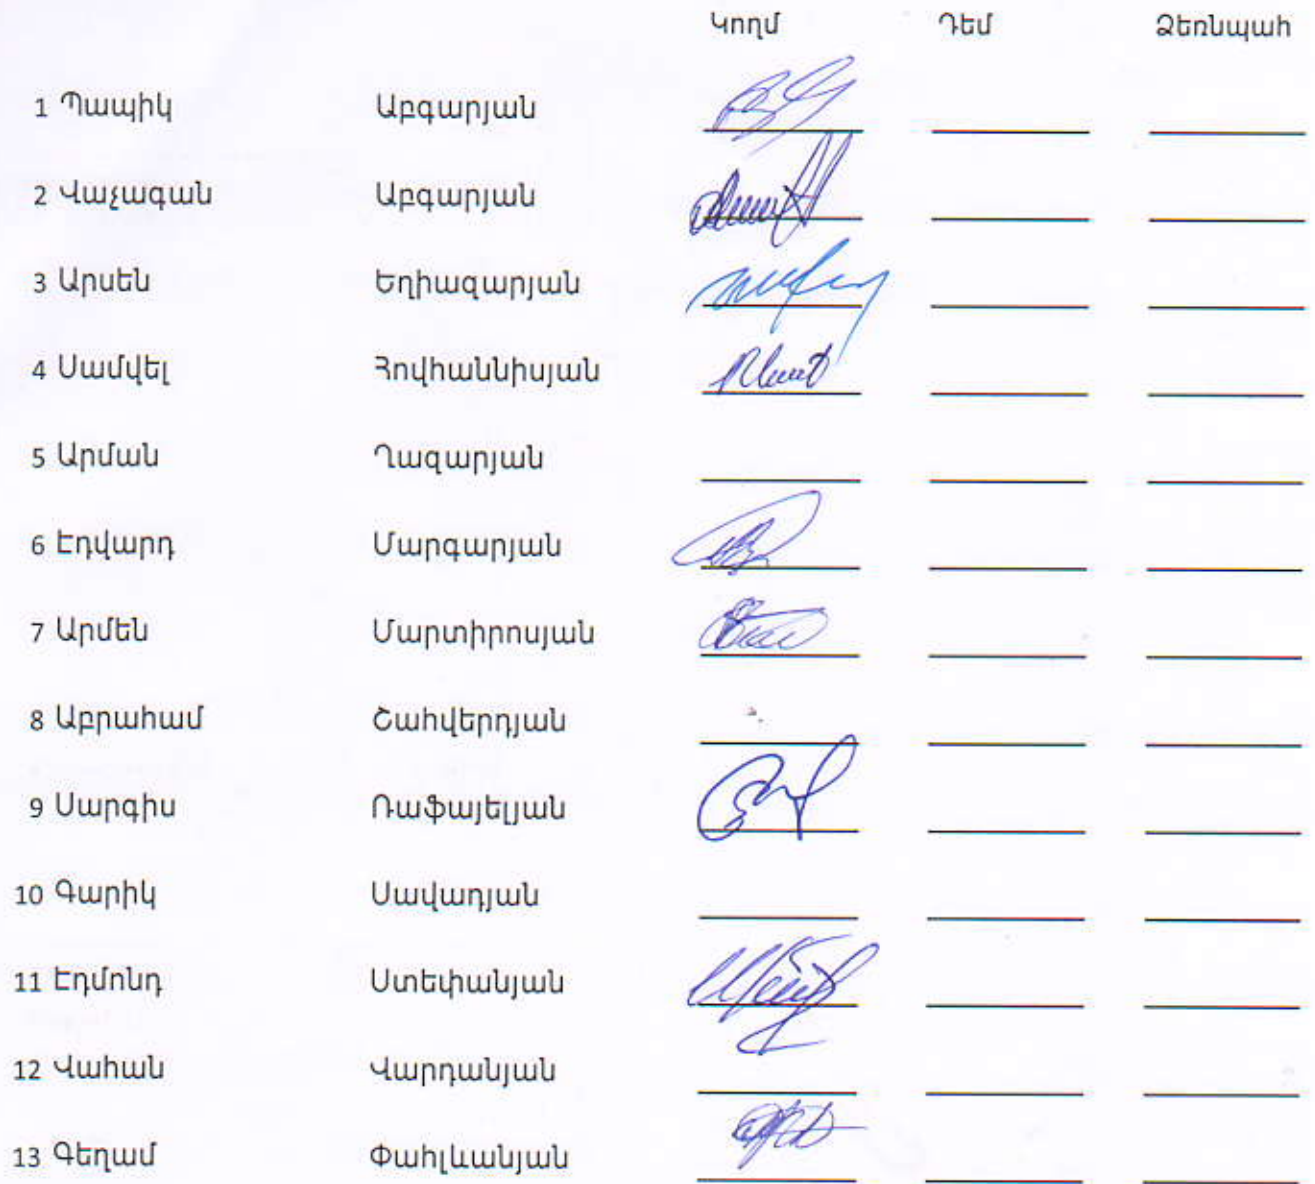 Կողմ Դեմ Ձեռնպահ
1 Պապիկ Աբգարյան
2 Վաչագան Աբգարյան
3 Արսեն Եղիազարյան
4 Սամվել Հովհաննիսյան
5 Արման Ղազարյան
6 Էդվարդ Մարգարյան
7 Արմեն Մարտիրոսյան
8 Աբրահամ Շահվերդյան
9 Սարգիս Ռաֆայելյան
10 Գարիկ Սավադյան
11 Էդմոնդ Ստեփանյան
12 Վահան Վարդանյան
13 Գեղամ Փահլևանյան